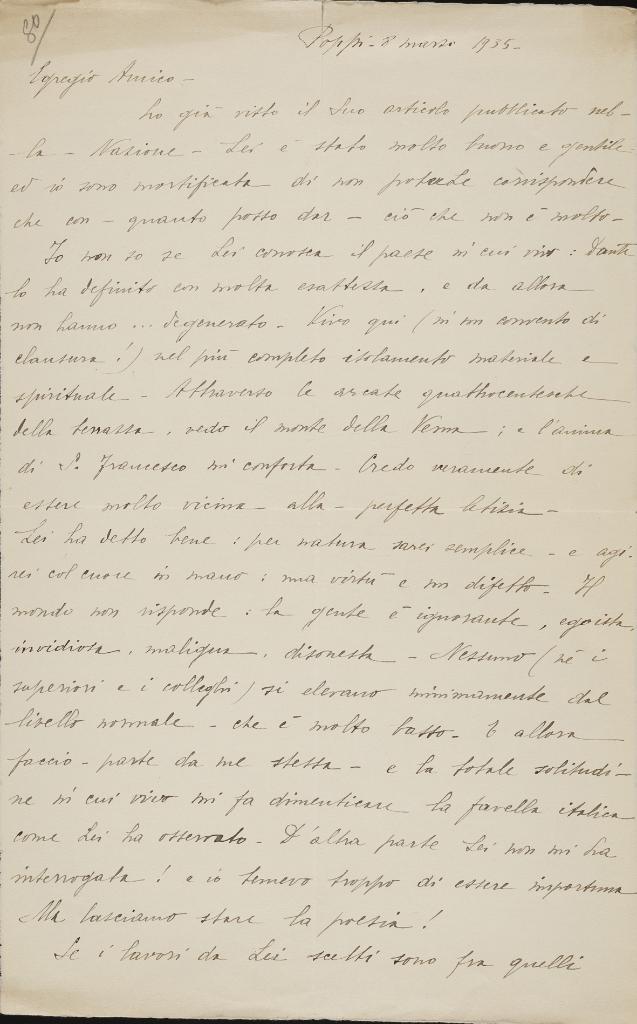 80
Poppi - 8 marzo 1935 -
Egregio Amico -
ho già visto il Suo articolo pubblicato nel-
-la - Nazione - Lei è stato molto buono e gentile
ed io sono mortificata di non poterLe corrispondere
che con - quanto posso dar - ciò che non è molto -
Io non so se Lei conosca il paese in cui vivo : Dante
lo ha definito con molta esattezza, e da allora
non hanno ... degenerato - Vivo qui (in un convento di
clausura !) nel più completo isolamento materiale e
spirituale - Attraverso le arcate quattrocentesche
della terrazza, vedo il monte della Verna ; e l'anima
di S. Francesco mi conforta - Credo veramente di
essere molto vicina - alla - perfetta letizia -
Lei ha detto bene : per natura sarei semplice - e agi-
rei col cuore in mano : una virtù e un difetto - Il
mondo non risponde : la gente è ignorante, egoista,
invidiosa, maligna, disonesta - Nessuno (nè i
superiori e i colleghi) si elevano minimamente dal
livello normale - che è molto basso - E allora
faccio - parte da me stessa - e la totale solitudi-
ne in cui vivo mi fa dimenticare la favella italica
come Lei ha osservato - D'altra parte Lei non mi ha
interrogata ! e io temevo troppo di essere importuna
Ma lasciamo stare la poesia !
Se i lavori da Lei scelti sono fra quelli